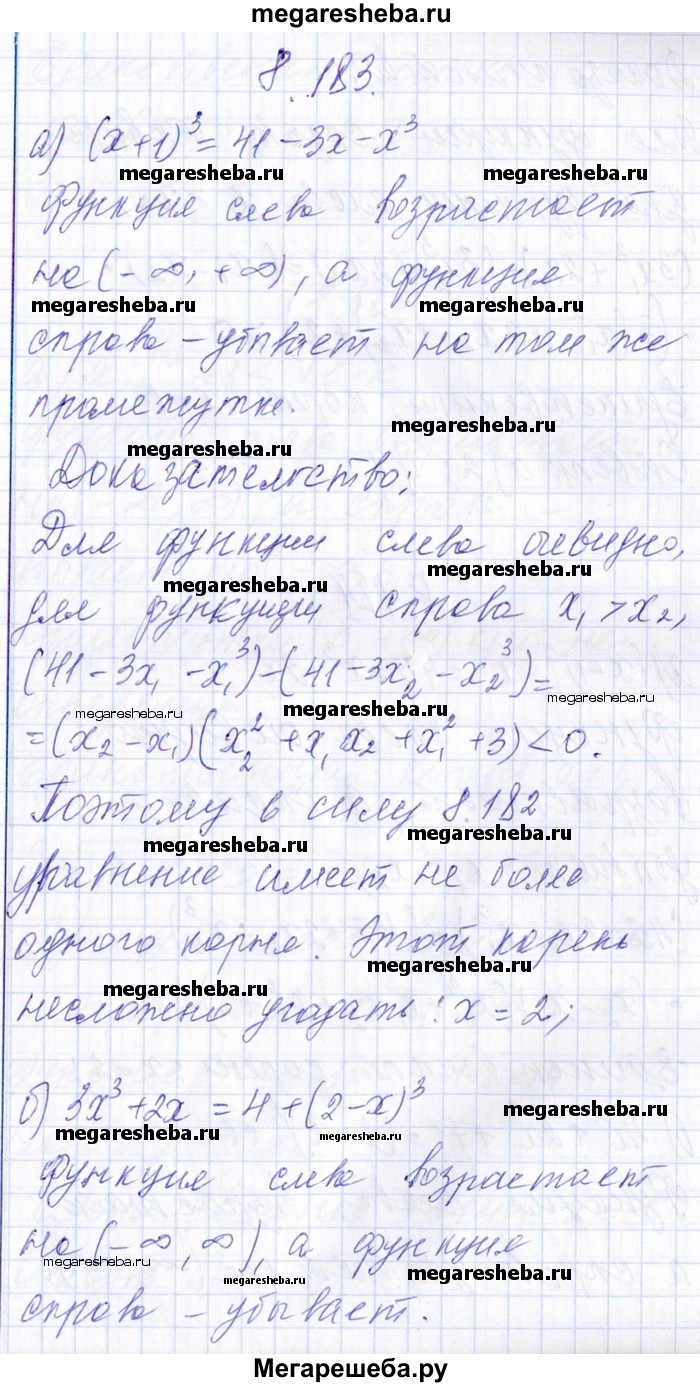 megaresheba.ru
8.183.
а) (x+1)³ = 41 - 3x - x³
megaresheba.ru megaresheba.ru
Функция слева возрастает
на (-∞, +∞), а функция
megaresheba.ru megaresheba.ru
справа - убывает на том же
промежутке.
megaresheba.ru
megaresheba.ru
Доказательство:
Для функции слева очевидно,
megaresheba.ru megaresheba.ru
для функции справа x₁ > x₂,
(41 - 3x₁ - x₁³) - (41 - 3x₂ - x₂³) =
megaresheba.ru megaresheba.ru
= (x₂ - x₁)(x₂² + x₁x₂ + x₁² + 3) < 0.
Поэтому в силу 8.182
megaresheba.ru megaresheba.ru
уравнение имеет не более
одного корня. Этот корень
megaresheba.ru megaresheba.ru
несложно угадать: x = 2;
б) 3x³ + 2x = 4 + (2-x)³
megaresheba.ru megaresheba.ru megaresheba.ru
Функция слева возрастает
на (-∞, ∞), а функция
megaresheba.ru megaresheba.ru megaresheba.ru
справа - убывает.
Мегарешеба.ру